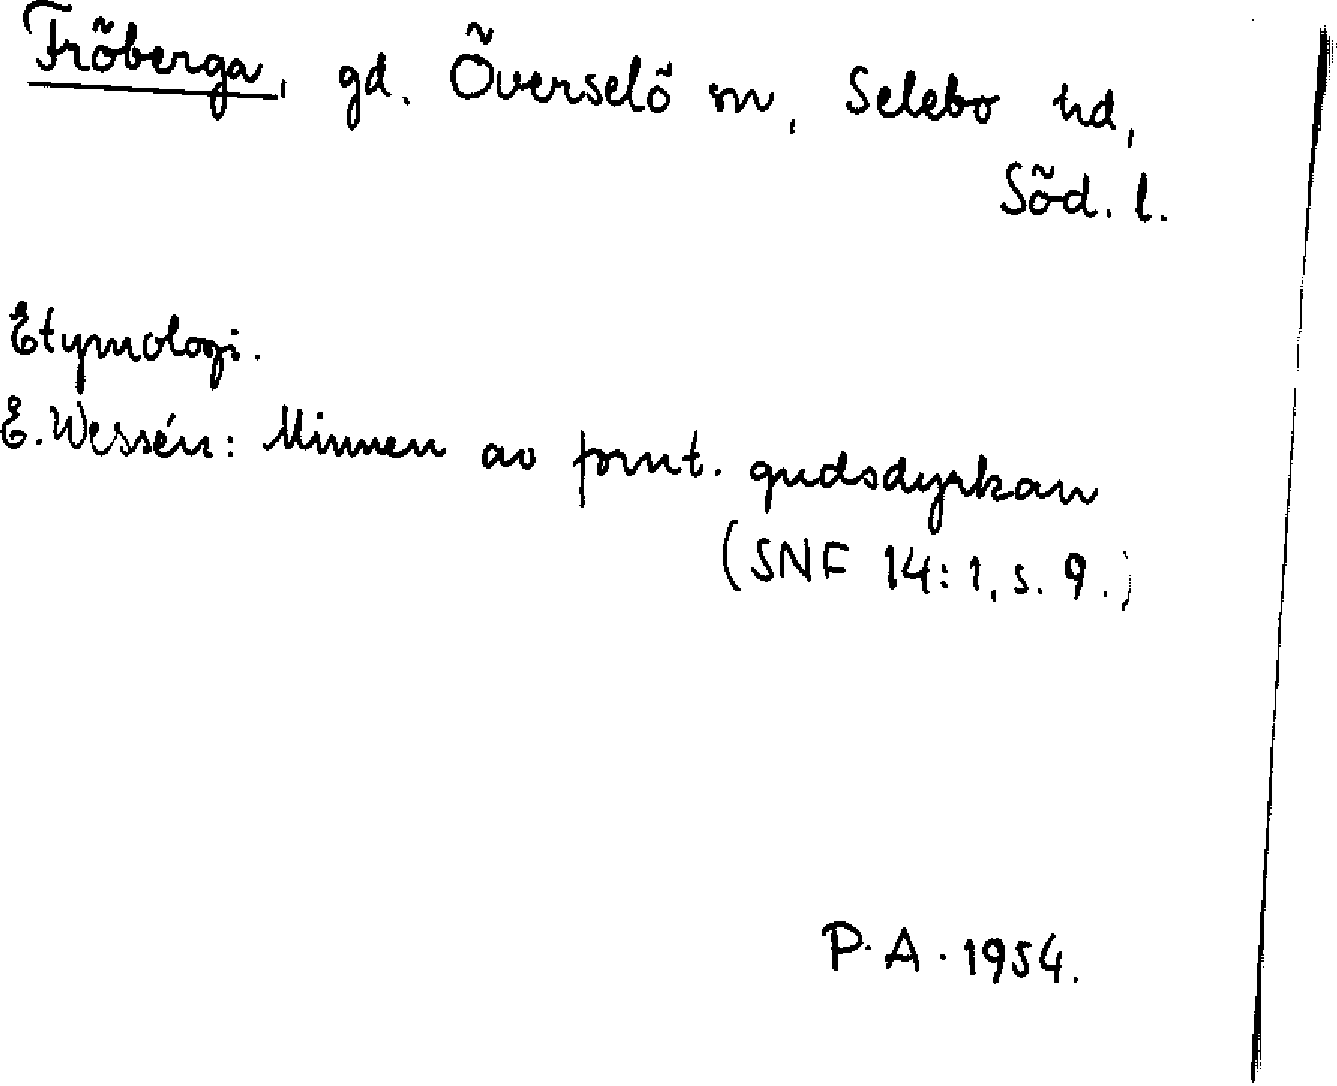 Fröberga, gd. Överselö sn, Selebo hd,
Söd. l.
Etymologi.
E. Wessén: Minnen av fornt. gudsdyrkan
(SNF 14:1, s. 9.)
P. A. 1954.